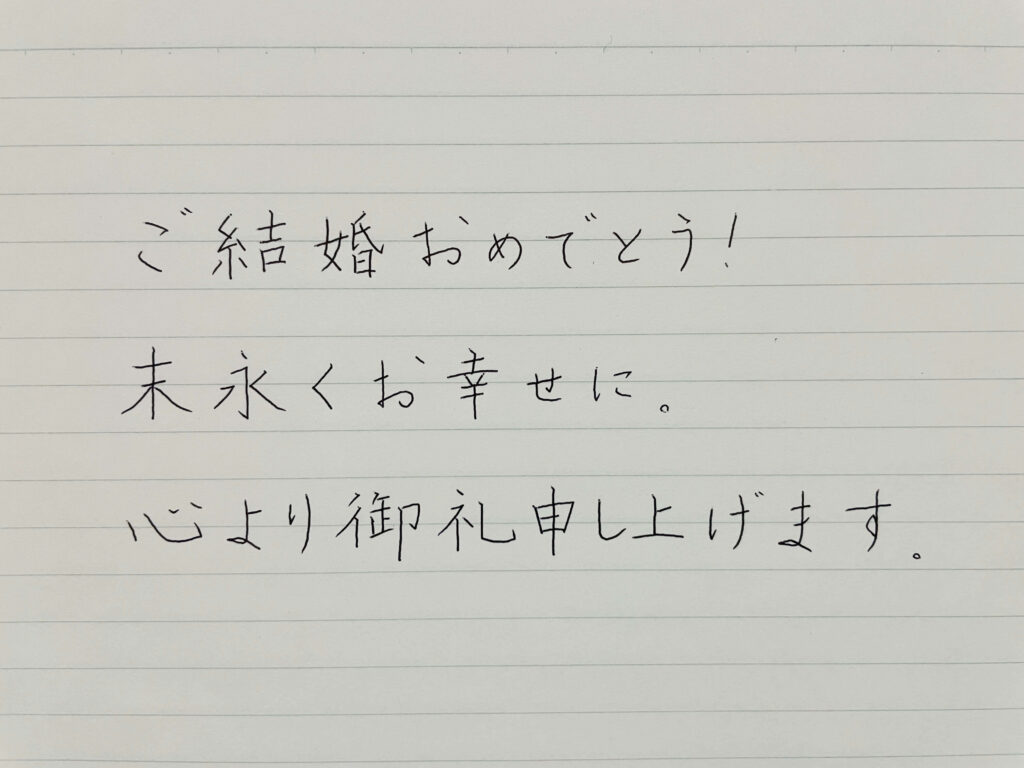 ご結婚おめでとう！
末永くお幸せに。
心より御礼申し上げます。